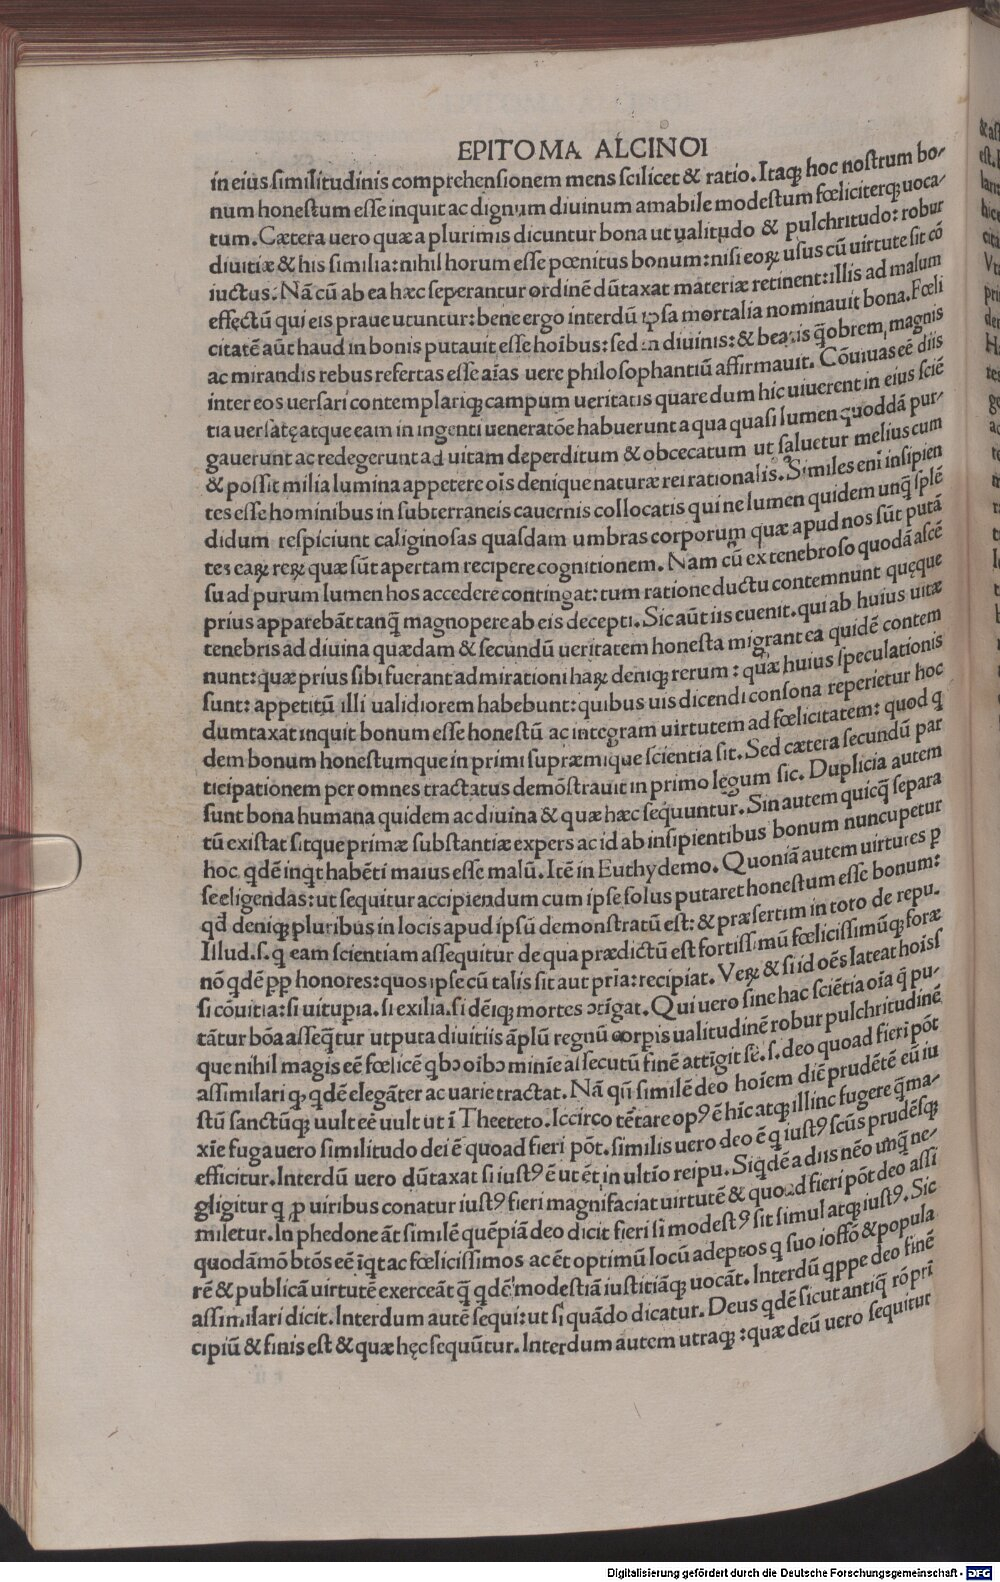 EPITOMA ALCINOI
in eius similitudinis comprehensionem mens scilicet & ratio. Itaqꝫ hoc nostrum bo-
num honestum esse inquit ac dignum diuinum amabile modestum fœliciterqꝫ uoca-
tum. Cætera uero quæ a plurimis dicuntur bona ut ualitudo & pulchritudo: robur
diuitiæ & his similia: nihil horum esse pœnitus bonum: nisi eoꝝ usus cū uirtute sit cō
iuctus. Nā cū ab ea hæc seperantur ordinē dūtaxat materiæ retinent: illis ad malum
effęctū qui eis praue utuntur: bene ergo interdū ipsa mortalia nominauit bona. Fœli
citatē aūt haud in bonis putauit esse hoībus: sed in diuinis: & beatis q̄obrem magnis
ac mirandis rebus refertas esse aīas uere philosophantiū affirmauit. Cōuiuas eē diis
inter eos uersari contemplariqꝫ campum ueritatis quare dum hic uiuerent in eius sciē
tia uersatę atque eam in ingenti ueneratōe habuerunt a qua quasi lumen quoddā pur-
gauerunt ac redegerunt ad uitam deperditum & obcecatum ut saluetur melius cum
& possit milia lumina appetere oīs denique naturæ rei rationalis. Similes enī insipien
tes esse hominibus in subterraneis cauernis collocatis qui ne lumen quidem unq̄ splē
didum respiciunt caliginosas quasdam umbras corporum quæ apud nos sūt putā
tes eaꝝ reꝝ quæ sūt apertam recipere cognitionem. Nam cū ex tenebroso quodā ascē
su ad purum lumen hos accedere contingat: tum ratione ductu contemnunt quęque
prius apparebāt tanq̄ magnopere ab eis decepti. Sic aūt iis euenit. qui ab huius uitæ
tenebris ad diuina quædam & secundū ueritatem honesta migrant ea quidē contem
nunt: quæ prius sibi fuerant admirationi haꝝ deniqꝫ rerum: quæ huius speculationis
sunt: appetitū illi ualidiorem habebunt: quibus uis dicendi consona reperietur hoc
dumtaxat inquit bonum esse honestū ac integram uirtutem ad fœlicitatem: quod q
dem bonum honestumque in primi supræmique scientia sit. Sed cætera secundū par
ticipationem per omnes tractatus demōstrauit in primo legum sic. Duplicia autem
sunt bona humana quidem ac diuina & quæ hæc sequuntur. Sin autem quicq̄ separa
tū existat sitque primæ substantiæ expers ac id ab insipientibus bonum nuncupetur
hoc qdē inqt habēti maius esse malū. Itē in Euthydemo. Quoniā autem uirtutes ꝑ
se eligendas: ut sequitur accipiendum cum ipse solus putaret honestum esse bonum:
qđ deniqꝫ pluribus in locis apud ipsū demonstratū est: & præsertim in toto de repu.
Illud. s. q eam scientiam assequitur de qua prædictū est fortissimū fœlicissimūqꝫ foræ
nō qdē ꝓꝑ honores: quos ipse cū talis sit aut pria: recipiat. Veꝝ & si id oēs lateat hoīss
si cōuitia: si uitupia. si exilia. si dēiqꝫ mortes ↄtīgat. Qui uero sine hac sciētia oīa q̄ pu-
tātur bōa asseq̄tur utputa diuitiis āplū regnū corpis ualitudinē robur pulchritudinē
que nihil magis eē fœlicē qbↄ oībↄ minīe assecutū finē attīgit sē. s. deo quoad fieri pōt
assimilari q, qdē elegāter ac uarie tractat. Nā qñ similē deo hoīem diē prudētē eū iu
stū sanctūqꝫ uult eē uult ut ī Theeteto. Iccirco tētare opꝰ ē hīc atqꝫ illinc fugere q̄ ma-
xīe fuga uero similitudo dei ē quoad fieri pōt. similis uero deo ē q iustꝰ scūs prudēsqꝫ
efficitur. Interdū uero dūtaxat si iustꝰ ē ut ēt in ultīo reipu. Siqdē a diis nēo unq̄ ne-
gligitur q ꝓ uiribus conatur iustꝰ fieri magnifaciat uirtutē & quoad fieri pōt deo assi
miletur. In phedone āt similē quēpiā deo dicit fieri si modestꝰ sit simul atqꝫ iustꝰ. Sic
quodāmō btōs eē īqt ac fœlicissimos ac ēt optimū locū adeptos q suo ioffō & popula
rē & publicā uirtutē exerceāt q̄ qdē modestiā iustitiāqꝫ uocāt. Interdū qppe deo finē
assimilari dicit. Interdum autē sequi: ut si quādo dicatur. Deus qdē sicut antiq̄ rō pri
cipiū & finis est & quæ hęc sequūtur. Interdum autem utraqꝫ: quæ deū uero sequitur
Digitalisierung gefördert durch die Deutsche Forschungsgemeinschaft - DFG